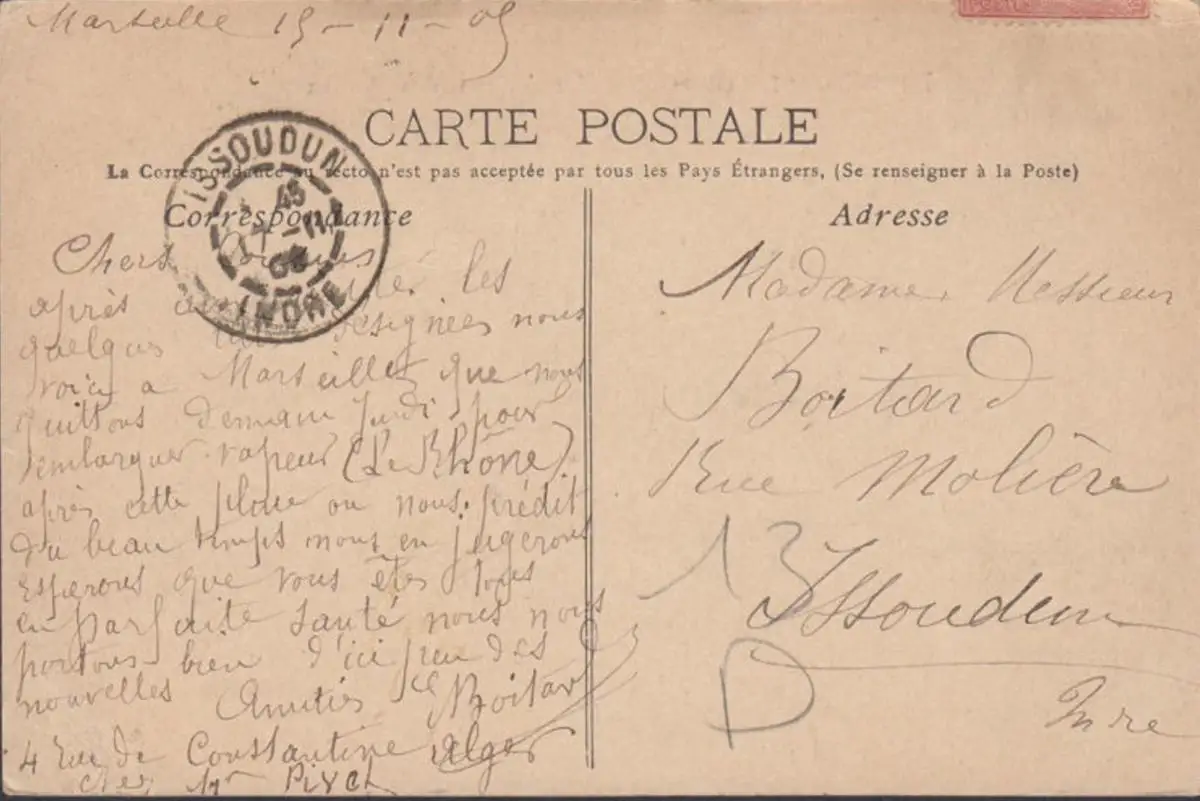 Marseille 15-11-05
POSTES
CARTE POSTALE
La Correspondance au recto n'est pas acceptée par tous les Pays Étrangers, (Se renseigner à la Poste)
ISSOUDUN
INDRE
Correspondance
Chers Cousins
après les
quelques désignées nous
voici a Marseille que nous
quittons demain Jeudi pour
embarquer vapeur (Le Rhône)
après cette pluie on nous prédit
du beau temps nous en jugerons
Esperons que vous êtes tous
en parfaite santé nous nous
portons bien d'ici peu des
nouvelles Amitiés Boitard
4 Rue de Constantine Alger
chez Mr
Adresse
Madame Messieurs
Boitard
Rue Molière
13
Issoudun
D
Indre